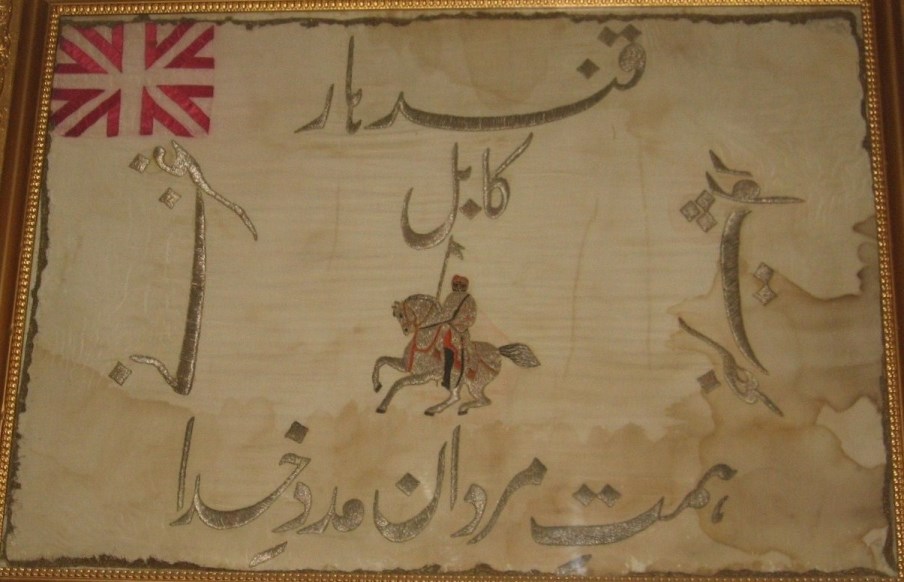 قندہار
کابل
ہمتِ مردان مددِ خدا